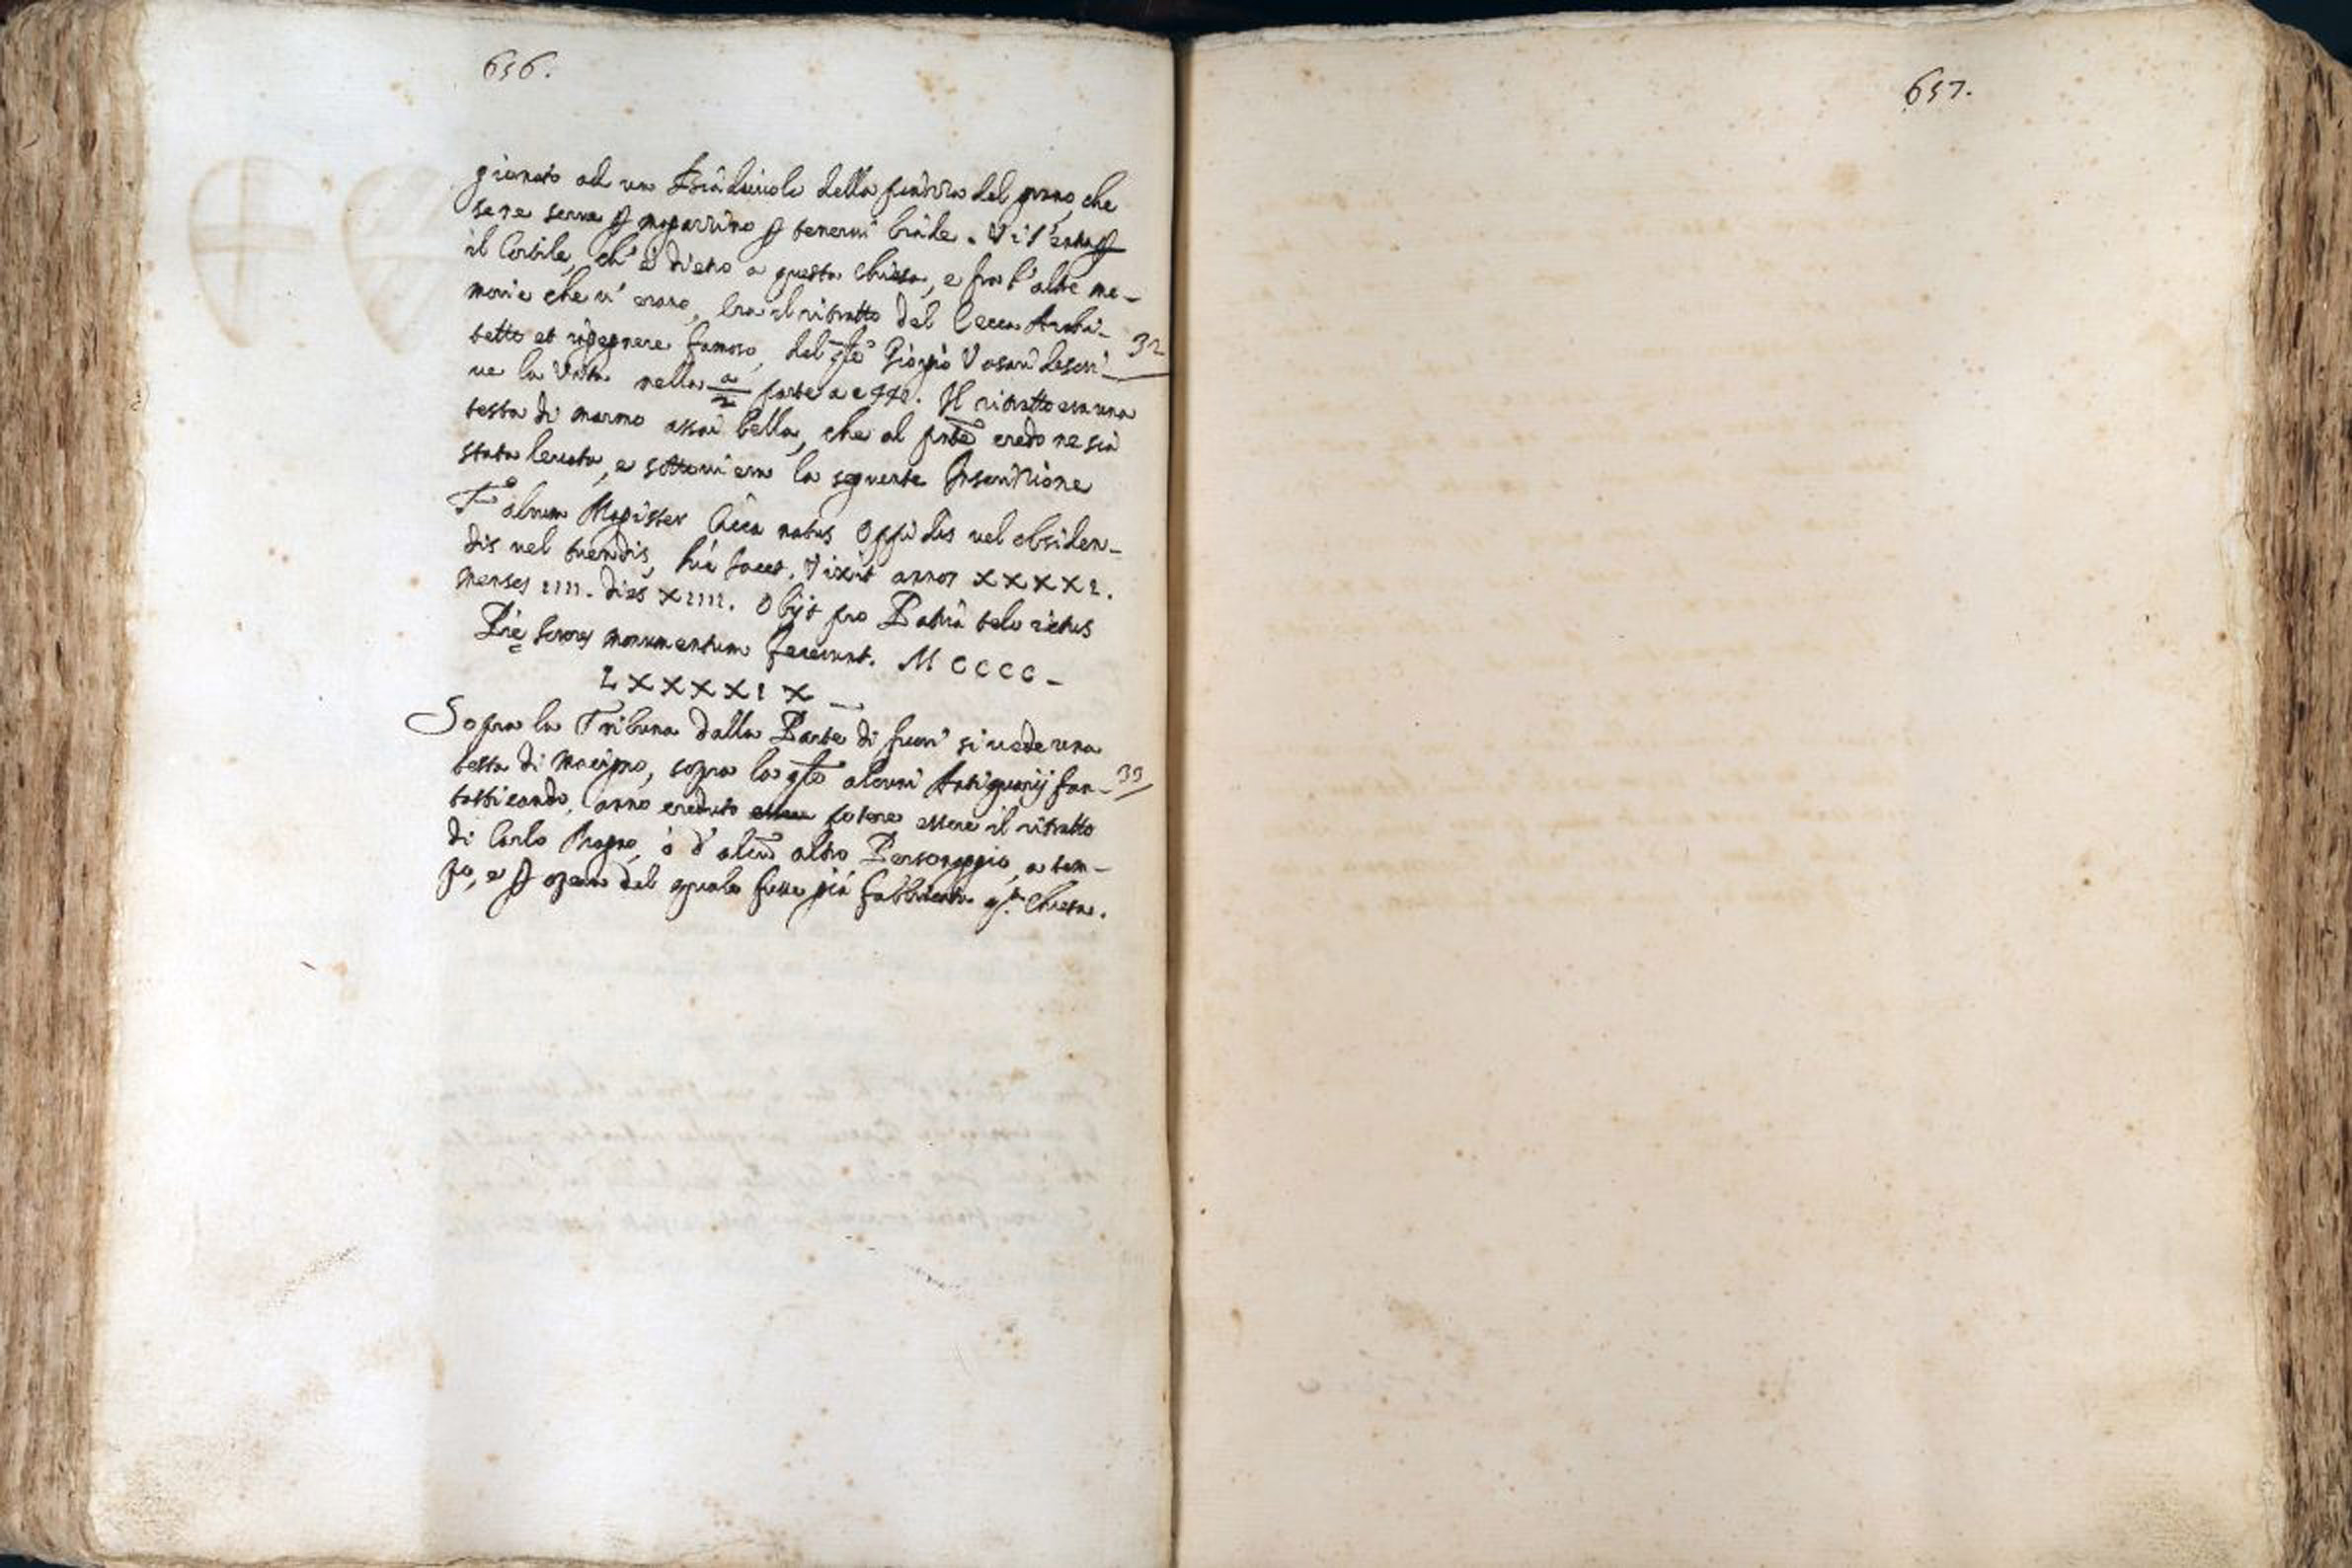 656.
gionato ad un Biadaiuolo della piazza del grano, che
se ne serve ꝑ magazzino ꝑ tenervi biade. Vi s'entra ꝑ
il Cortile, ch' è dietro a questa Chiesa, e fra l'altre me-
morie che v' erano, era il ritratto del Cecca Archi-
tetto et ingegnere famoso, del qle Giorgio Vasari descri- 32
ve la Vita nella 2a parte a c 442. Il ritratto era una
testa di marmo assai bella, che al pnte credo ne sia
stata levata, e sottovi era la seguente Inscrittione
Fabrum Magister Cicca natus Oppidis vel obsiden-
dis vel tuendis, hic Jacet. Vixit annos XXXXI.
Menses IIII. dies XIIII. Obijt pro Patria telo ictus
Pię Sorores monumentum fecerunt. MCCCC-
LXXXXIX
Sopra la Tribuna dalla Parte di fuori si vede una
testa di Macigno, sopra la qle alcuni Antiquarij fan- 33
tasticando, anno creduto potere essere il ritratto
di Carlo Magno, ò d' alcun altro Personaggio, a tem-
po, e ꝑ opera del quale fusse già fabbricata qta Chiesa.
657.